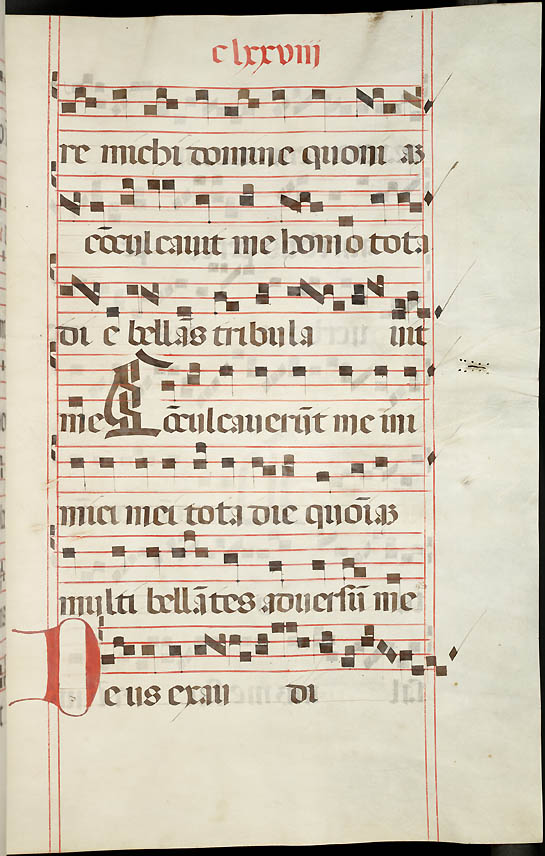 clxxviij
re michi domine quoni aȝ
cōculcauit me homo tota
di e bellās tribula uit
me Cōculcauerūt me ini
mici mei tota die quoīaȝ
multi bellātes aduersū me
Deus exau di